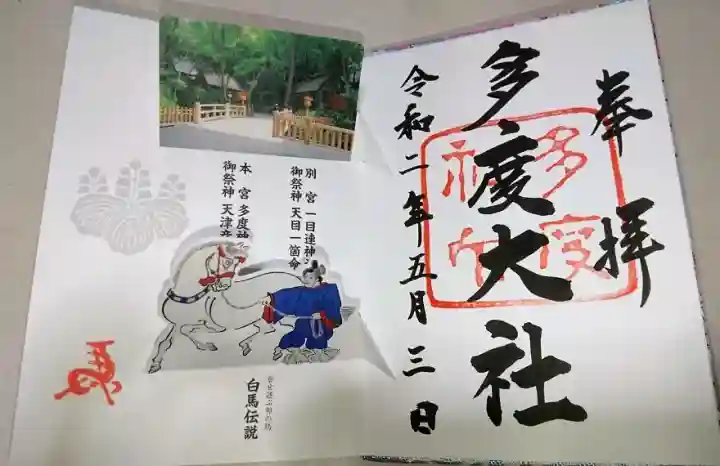 奉拝
多度大社
令和二年五月三日
多度大社
別宮 一目連神
御祭神 天目一箇命
本宮 多度神
御祭神 天津彦
幸せ運ぶ神の馬
白馬伝説
馬